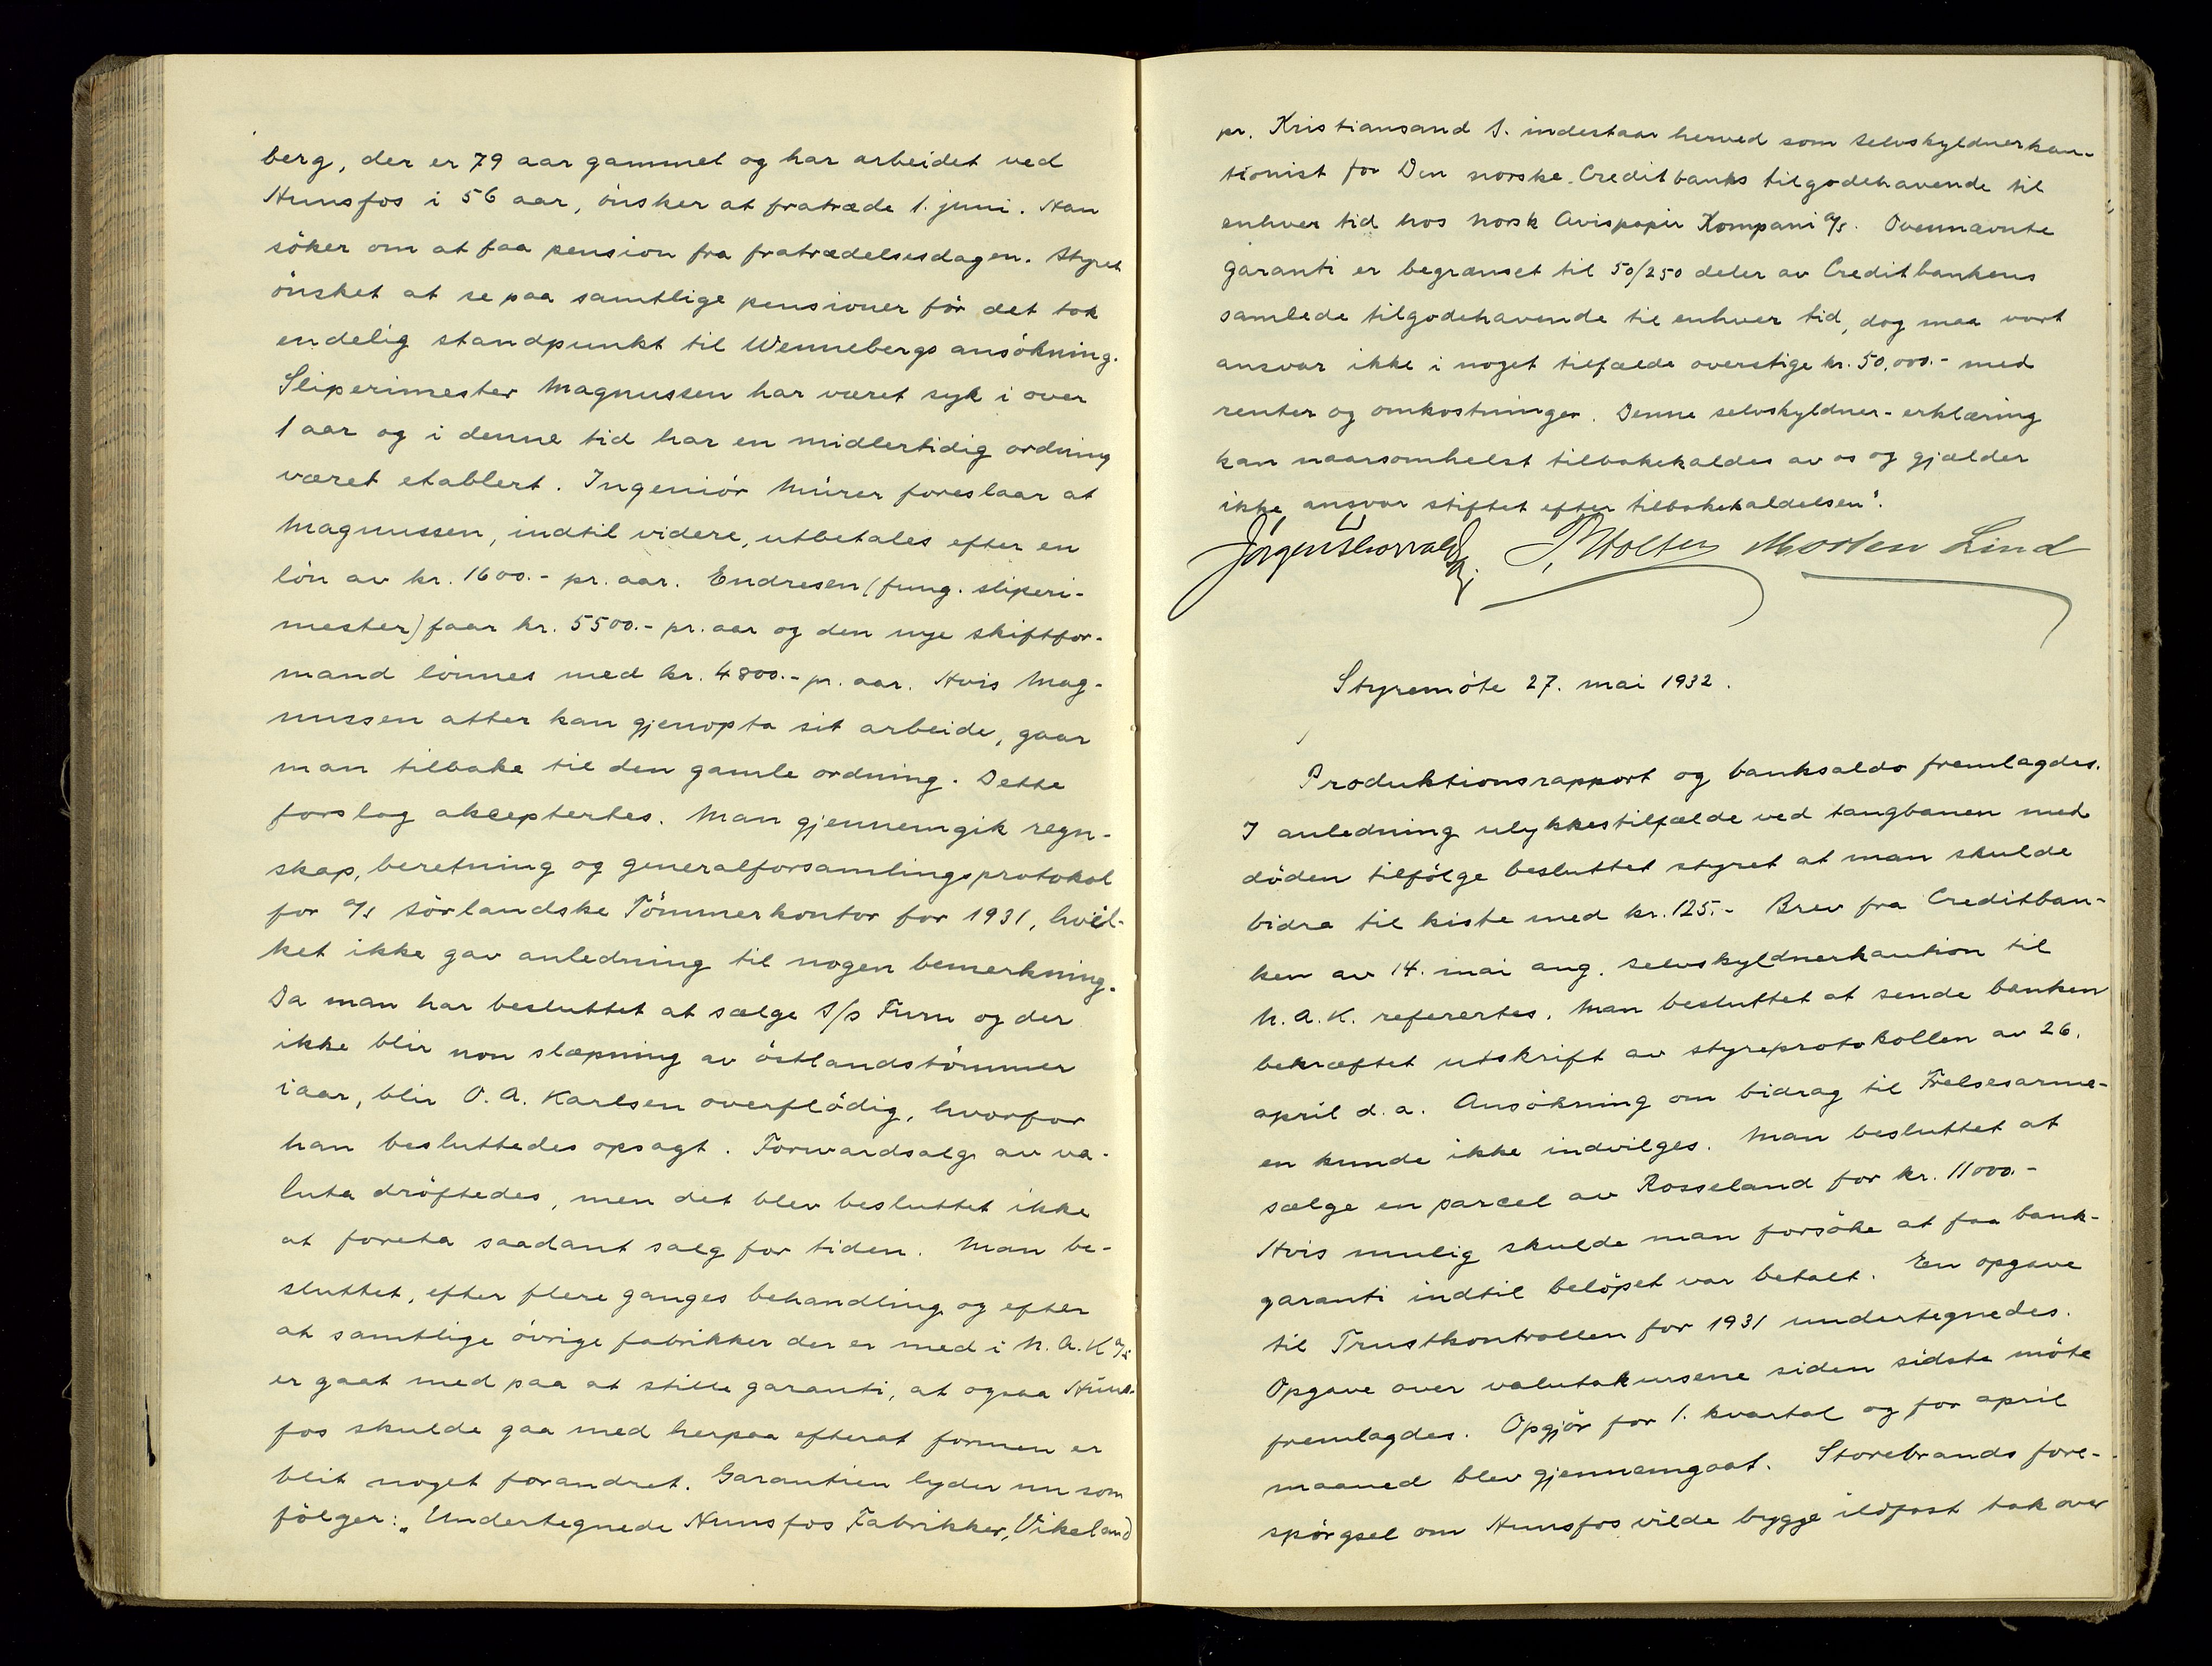 berg, der er 79 aar gammel og har arbeidet ved
Hunsfos i 56 aar, ønsker at fratræde 1. juni. Han
söker om at faa pension fra fratrædelsesdagen. Styret
önsket at se paa samtlige pensioner för det tok
endelig standpunkt til Wennebergs ansökning.
Sliperimester Magnussen har været syk i over
1 aar og i denne tid har en midlertidig ordning
været etablert. Ingeniör Mürer foreslaar at
Magnussen, indtil videre, utbetales efter en
lön av kr. 1600.- pr. aar. Endresen (fung. sliperi-
mester) faar kr. 5500.- pr. aar og den nye skiftfor-
mand lönnes med kr. 4800.- pr. aar. Hvis Mag-
nussen atter kan gjenopta sit arbeide, gaar
man tilbake til den gamle ordning. Dette
forslag akceptertes. Man gjennemgik regn-
skap, beretning og generalforsamlingsprotokol
for a/s Sörlandske Tömmerkontor for 1931, hvil-
ket ikke gav anledning til nogen bemerkning.
Da man har besluttet at sælge S/S Furu og der
ikke blir non slæpning av östlandstömmer
iaar, blir O. A. Karlsen overflödig, hvorfor
han besluttedes opsagt. Forwardsalg av va-
luta dröftedes, men det blev besluttet ikke
at foreta saadant salg for tiden. Man be-
sluttet, efter flere ganges behandling og efter
at samtlige övrige fabrikker der er med i N. A. K a/s
er gaat med paa at stille garanti, at ogsaa Huns-
fos skulde gaa med herpaa efterat formen er
blit noget forandret. Garantien lyder nu som
fölger: „Undertegnede Hunsfos Fabrikker, Vikeland
pr. Kristiansand S. indestaar herved som selvskyldnerkau-
tionist for Den norske Creditbanks tilgodehavende til
enhver tid hos Norsk Avispapir Kompani a/s. Ovennævnte
garanti er begrænset til 50/250 deler av Creditbankens
samlede tilgodehavende til enhver tid, dog maa vort
ansvar ikke i noget tilfælde overstige kr. 50,000.- med
renter og omkostninger. Denne selvskyldner-erklæring
kan naarsomhelst tilbakekaldes av os og gjælder
ikke ansvar stiftet efter tilbakekaldelsen".
P. Wolter Morten Lind
Styremöte 27. mai 1932.
Produktionsrapport og banksaldo fremlagdes.
I anledning ulykkestilfælde ved tangbanen med
döden tilfölge besluttet styret at man skulde
bidra til kiste med kr. 125.- Brev fra Creditban-
ken av 14. mai ang. selvskyldnerkaution til
N. A. K. referertes. Man besluttet at sende banken
bekræftet utskrift av styreprotokollen av 26.
april d. a. Ansökning om bidrag til Frelsesarme-
en kunde ikke indvilges. Man besluttet at
sælge en parcel av Rosseland for kr. 11000.-
Hvis mulig skulde man forsöke at faa bank-
garanti indtil belöpet var betalt. En opgave
til Trustkontrollen for 1931 undertegnedes.
Opgave over valutakursene siden sidste möte
fremlagdes. Opgjör for 1. kvartal og for april
maaned blev gjennemgaat. Storebrands fore-
spörgsel om Hunsfos vilde bygge ildfast tak over